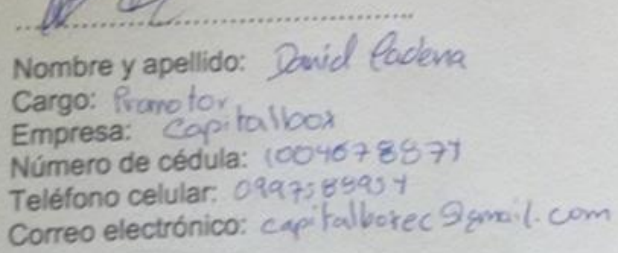 Nombre y apellido: David Cadena
Cargo: Promotor
Empresa: Capitalbox
Número de cédula:
Teléfono celular:
Correo electrónico: capitalboxec@gmail.com